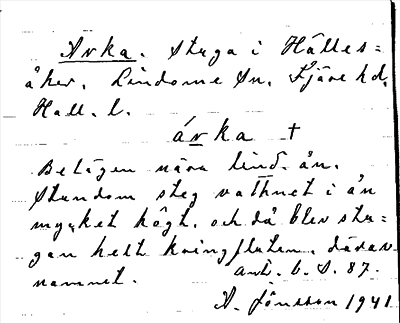 Arka. Stuga i Hälles=
åker. Lindome Sn. Fjäre hd,
Hall. l.
árka †
Belägen nära Lind. ån.
Stundom steg vattnet i ån
mycket högt. och då blev stu-
gan helt kringfluten. därav
namnet. ant. b. S. 87.
A. Jönsson 1941